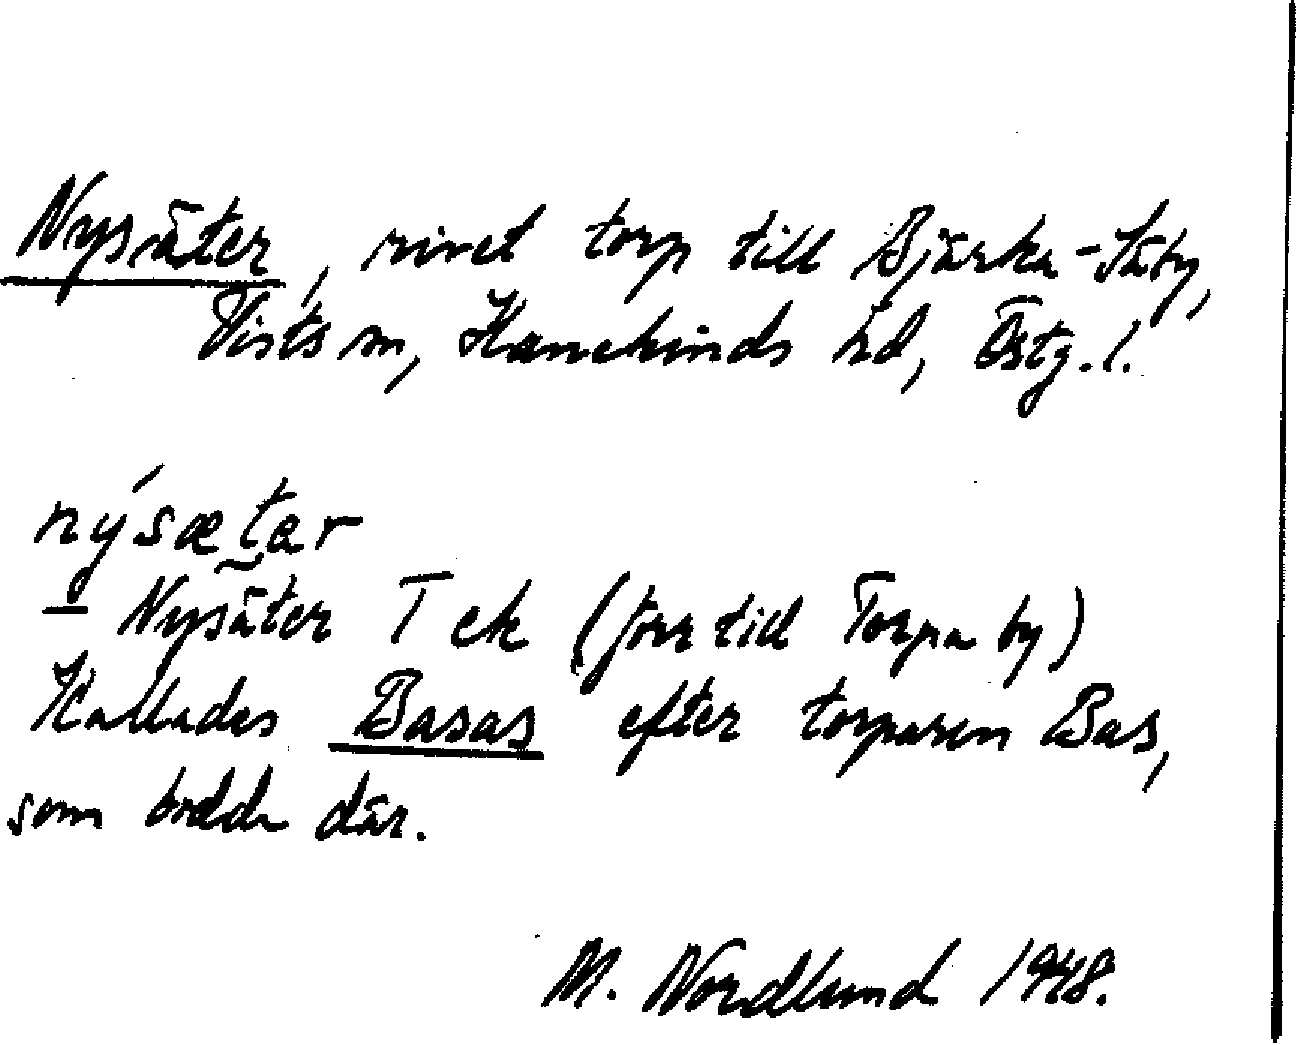 Nysäter, rivet torp till Bjärka-Säby,
Vists sn, Hanekinds hd, Östg.l.
nýsætar
— Nysäter T ek (förr till Torpa by)
Kallades Basas efter torparen Bas,
som bodde där.
M. Nordlund 1948.